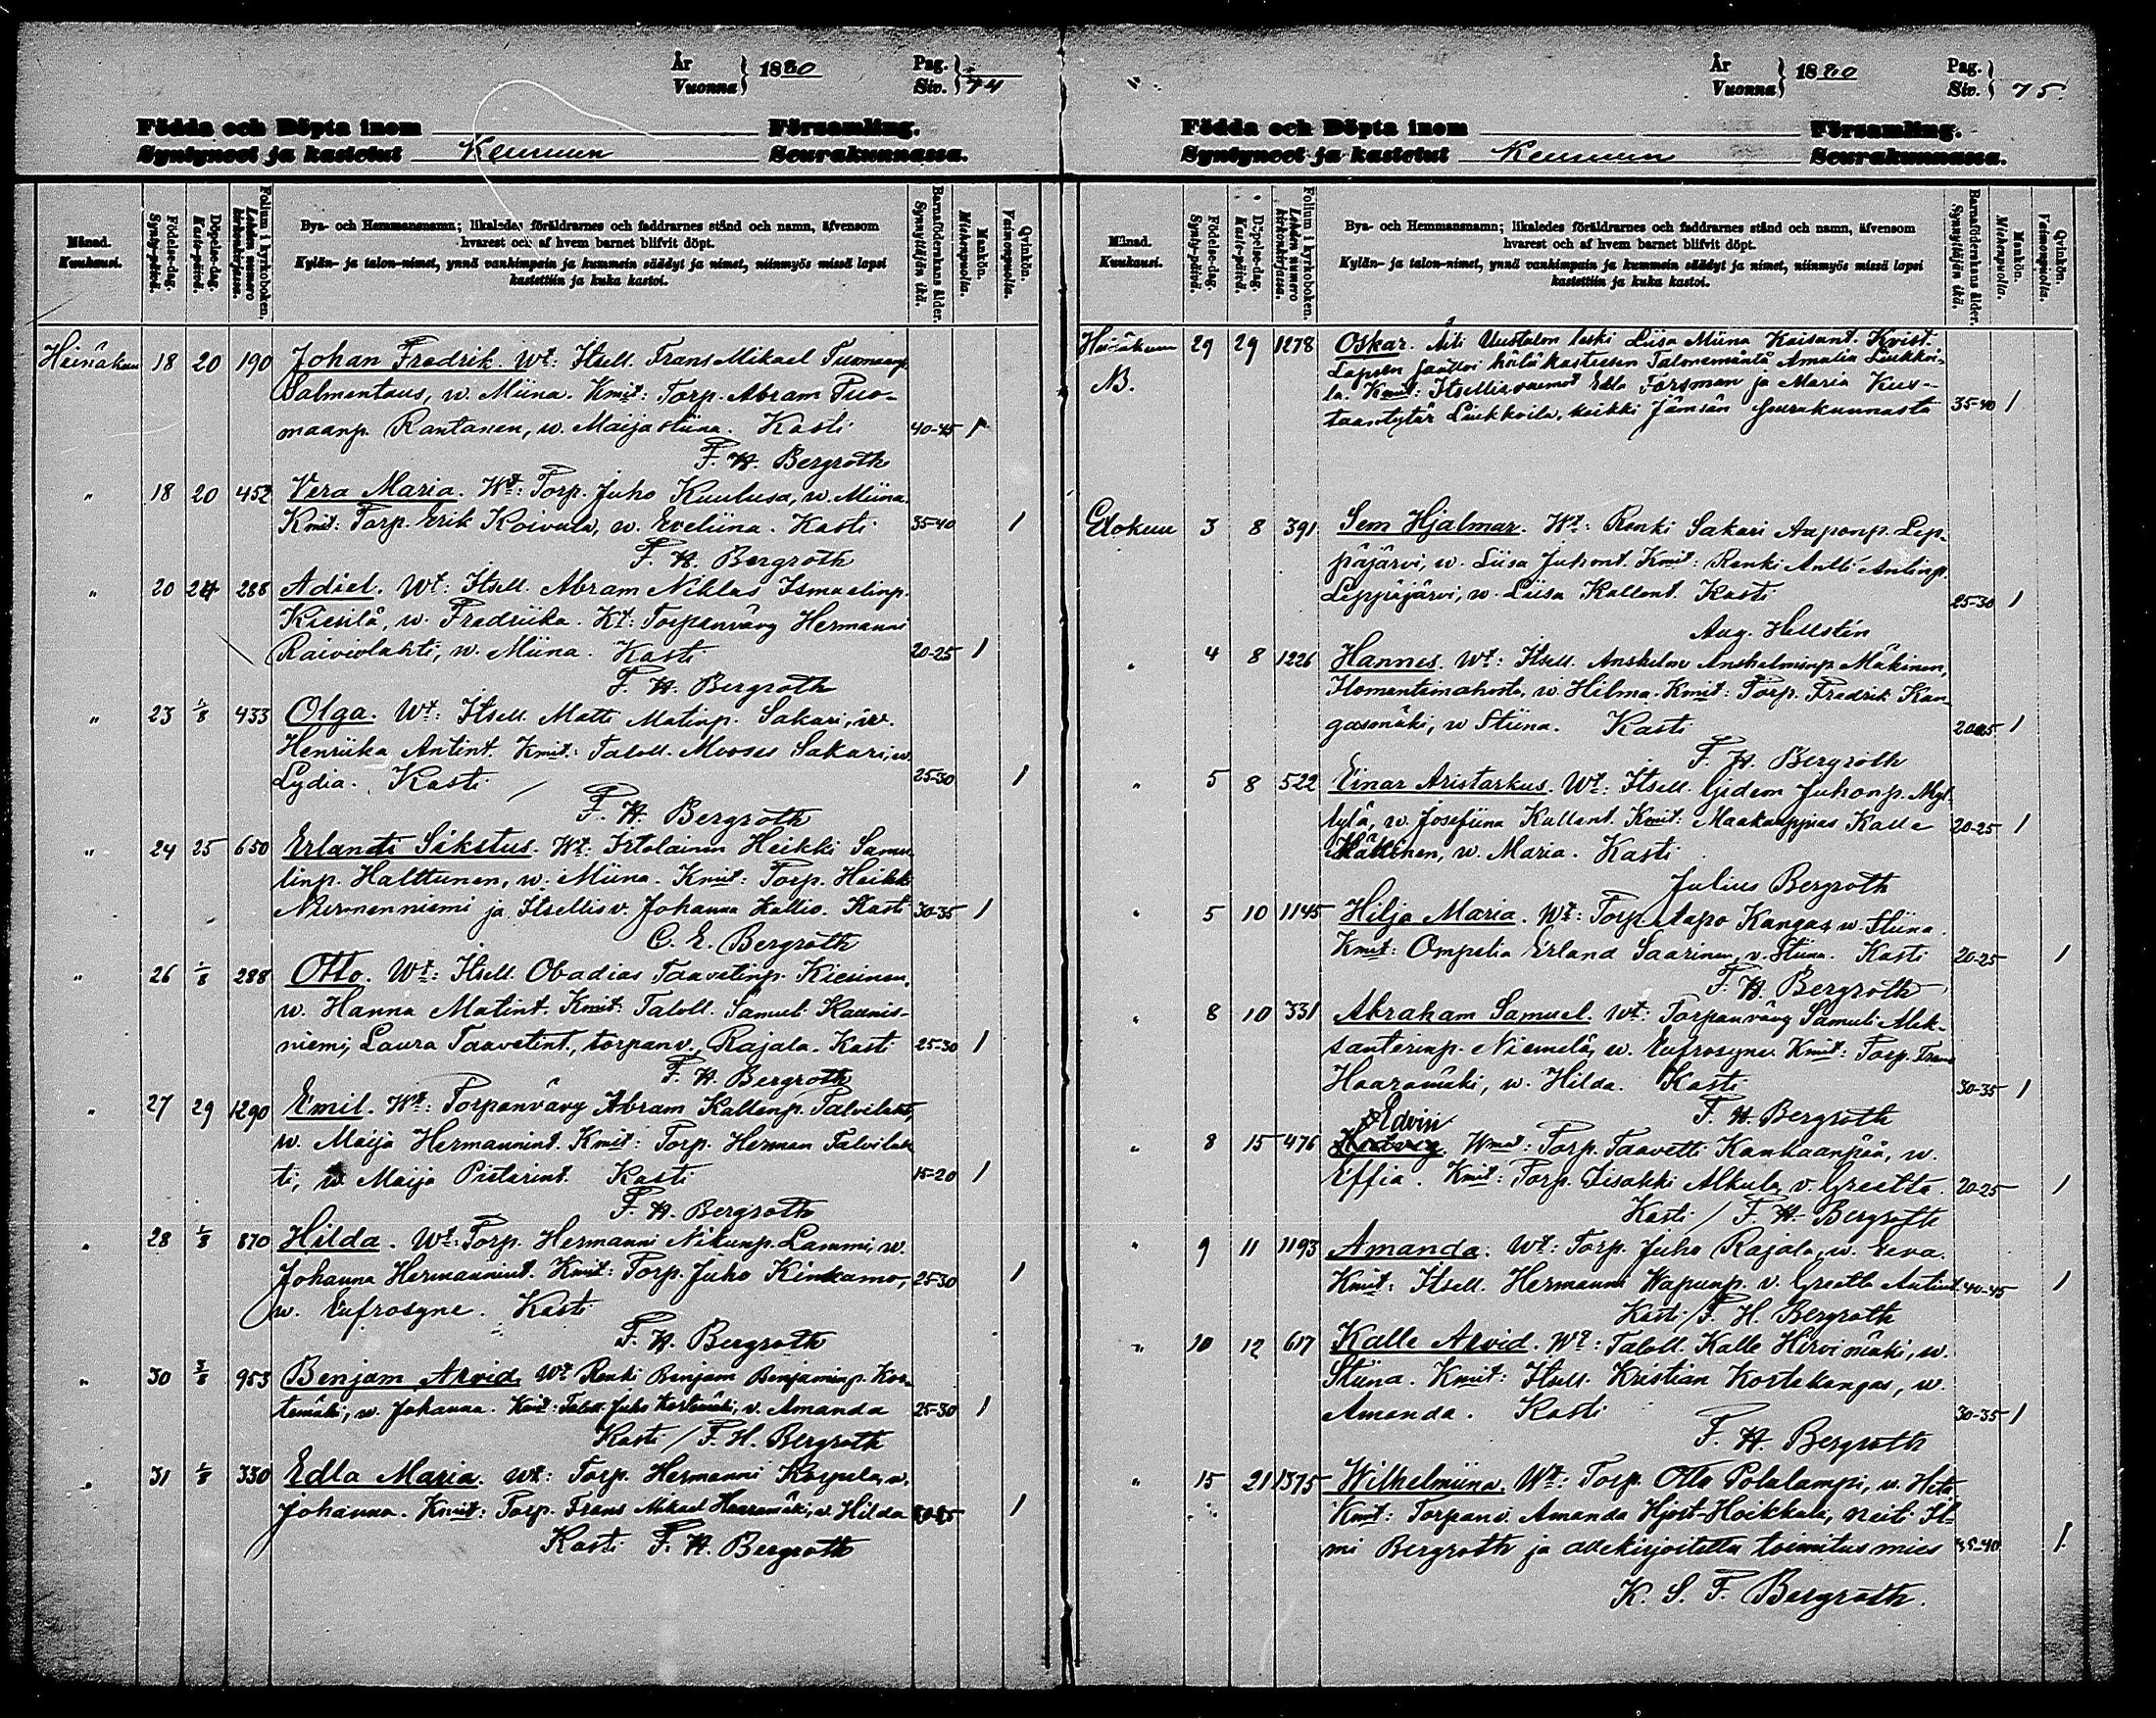 År
Vuonna } 1880
Pag.
Siv. } 74
Födda och Döpta inom Församling.
Syntyneet ja kastetut Keuruun Seurakunnassa.
Månad.
Kuukausi.
Födelse-dag.
Synty-päivä.
Döpelse-dag.
Kaste-päivä.
Folium i kyrkoboken.
Lehden numero kirkonkirjassa.
Bya- och Hemmansnamn; likaledes föräldrarnes och faddrarnes stånd och namn, äfvensom
hvarest och af hvem barnet blifvit döpt.
Kylän- ja talon-nimet, ynnä vanhimpain ja kummein säädyt ja nimet, niinmyös missä lapsi
kastettiin ja kuka kastoi.
Barnaföderskans ålder.
Synnyttäjän ikä.
Mankön.
Miehenpuolia.
Qvinkön.
Vaimonpuolia.
Heinäkuu 18 20 190 Johan Fredrik. Wt: Itsell. Frans Mikael Tuomaanp.
Salmentaus, w. Miina. Kmit: Torp. Abram Tuo-
maanp. Rantanen, w. Maijastiina. Kasti 40-45 1
F. H. Bergroth
" 18 20 452 Vera Maria. Wt: Torp. Juho Kuulusa, w. Miina.
Kmit: Torp. Erik Koivula, w. Eveliina. Kasti 35-40 1
F. H. Bergroth
" 20 24 288 Adiel. Wt: Itsell. Abram Niklas Ismaelinp.
Kiesilä, w. Fredriika. Kt: Torpanvävy Hermanni
Raiviolahti, w. Miina. Kasti 20-25 1
F. H. Bergroth
" 23 1/8 433 Olga. Wt: Itsell. Matti Matinp. Sakari, w.
Henriika Antint. Kmit: Taloll. Mooses Sakari, w.
Lydia. Kasti / 25-30 1
F. H. Bergroth
" 24 25 650 Erlandi Sikstus. Wt: Heikki Samu-
linp. Halttunen, w. Miina. Kmit: Torp. Heikki
Nurmenniemi ja Itsellisv. Johanna Kallio. Kasti 30-35 1
C. E. Bergroth
" 26 1/8 288 Otto. Wt: Itsell. Obadias Taavetinp. Kiesinen,
w. Hanna Matint. Kmit: Taloll. Samuli Kaunis-
niemi, Laura Taavetint., torpanv. Rajala. Kasti 25-30 1
F. H. Bergroth
" 27 29 1290 Emil. Wt: Torpanvävy Abram Kallenp. Talvilahti,
w. Maija Hermannint. Kmit: Torp. Herman Talvilah-
ti, w. Maija Pietarint. Kasti 15-20 1
F. H. Bergroth
" 28 1/8 870 Hilda. Wt: Torp. Hermanni Nikunp. Lammi, w.
Johanna Hermannint. Kmit: Torp. Juho Kinkamo, 25-30 1
w. Eufrosyne. Kasti
F. H. Bergroth
" 30 3/8 953 Benjam Arvid. Wt Renki Benjam Benjaminp. Kor-
temäki, w. Johanna. Kmit: Taloll. Juho Kortemäki, v. Amanda 25-30 1
Kasti / F. H. Bergroth
" 31 1/8 330 Edla Maria. Wt: Torp. Hermanni Korpula, w.
Johanna. Kmit: Torp. Frans Mikael Haaramäki, w. Hilda 1
Kasti F. H. Bergroth
År
Vuonna } 1880
Pag.
Siv. } 75
Födda och Döpta inom Församling.
Syntyneet ja kastetut Keuruun Seurakunnassa.
Månad.
Kuukausi.
Födelse-dag.
Synty-päivä.
Döpelse-dag.
Kaste-päivä.
Folium i kyrkoboken.
Lehden numero kirkonkirjassa.
Bya- och Hemmansnamn; likaledes föräldrarnes och faddrarnes stånd och namn, äfvensom
hvarest och af hvem barnet blifvit döpt.
Kylän- ja talon-nimet, ynnä vanhimpain ja kummein säädyt ja nimet, niinmyös missä lapsi
kastettiin ja kuka kastoi.
Barnaföderskans ålder.
Synnyttäjän ikä.
Mankön.
Miehenpuolia.
Qvinkön.
Vaimonpuolia.
Heinäkuu 29 29 1278 Oskar. Äiti Uustalon leski Liisa Miina Kaisant. Kvist.
NB. Lapsen saattoi hätä kasteesen Talonemäntä Amalia Liukkoi-
la. Kmit: Itsellisvaimot Edla Forsman ja Maria Kus-
taantytär Liukkoila, kaikki Jämsän seurakunnasta 35-40 1
Elokuu 3 8 391 Sem Hjalmar. Wt: Renki Sakari Aaponp. Lep-
päjärvi, w. Liisa Juhont. Kmit: Renki Antti Antinp.
Leppäjärvi, w. Liisa Kallent. Kasti 25-30 1
Aug. Hellstén
" 4 8 1226 Hannes. Wt: Itsell. Anshelm Anshelminp. Mäkinen,
w. Hilma. Kmit: Torp. Fredrik Kan-
gasmäki, w Stiina. Kasti 20-25 1
F. H. Bergroth
" 5 8 522 Einar Aristarkus. Wt: Itsell. Gideon Juhonp. Myl-
lylä, w. Josefiina Kallent. Kmit: Maakauppias Kalle 20-25 1
w. Maria. Kasti
Julius Bergroth
" 5 10 1145 Hilja Maria. Wt: Torp. Aapo Kangas w. Stiina.
Kmit: Ompelia Erland Saarinen, v. Stiina. Kasti 20-25 1
F. H. Bergroth
" 8 10 331 Abraham Samuel. Wt: Torpanvävy Samuli Alek-
santerinp. Niemelä, w. Eufrosyne. Kmit: Torp. Frans
Haaramäki, w. Hilda. Kasti 30-35 1
F. H. Bergroth
Edvin
" 8 15 476 Wmat: Torp. Taavetti Kankaanpää, w.
Effia. Kmit: Torp. Iisakki Alkula v. Greetta. 20-25 1
Kasti / F. H. Bergroth
" 9 11 1193 Amanda. Wt: Torp. Juho Rajala, w. Eeva.
Kmit: Itsell. Hermanni Wapunp. v. Greetta Antint. 40-45 1
Kasti / F. H. Bergroth
" 10 12 617 Kalle Arvid. Wt: Taloll. Kalle Hirvimäki, w.
Stiina. Kmit: Itsell. Kristian Kortekangas, w.
Amanda. Kasti 30-35 1
F. H. Bergroth
" 15 21 1375 Wilhelmiina. Wt: Torp. Otto Polalampi, w. Heta.
Kmit: Torpanv. Amanda Hjort-Hoikkala, neiti Il-
mi Bergroth ja allekirjoitettu toimitusmies 35-40 1
K. S. F. Bergroth.